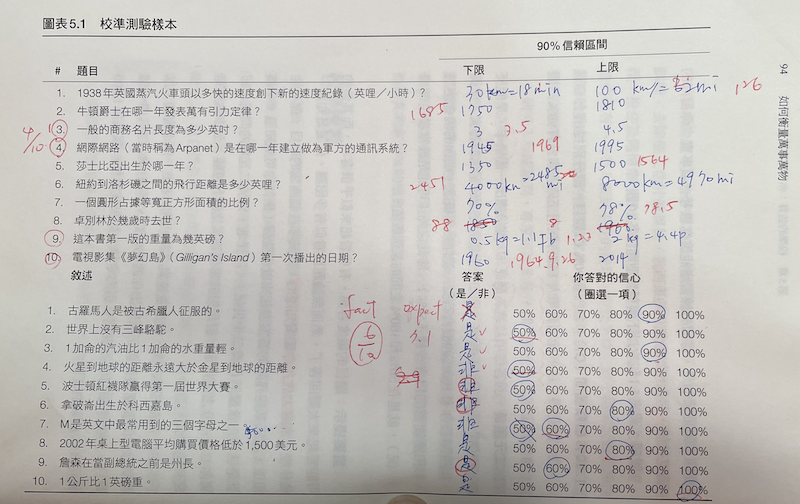 圖表5.1 校準測驗樣本
90%信賴區間
# 題目 下限 上限
1. 1938年英國蒸汽火車頭以多快的速度創下新的速度紀錄（英哩／小時）? 30km=18min 100 km/= 126
2. 牛頓爵士在哪一年發表萬有引力定律？ 1685 1750 1810
4/10
3. 一般的商務名片長度為多少英吋？ 3 3.5 4.5
4. 網際網路（當時稱為Arpanet）是在哪一年建立做為軍方的通訊系統？ 1945 1969 1995
5. 莎士比亞出生於哪一年？ 1350 1500 1564
6. 紐約到洛杉磯之間的飛行距離是多少英哩？ 2451 4000km=2485mi 8000km=4970mi
7. 一個圓形占據等寬正方形面積的比例？ 70% 78% 78.5
8. 卓別林於幾歲時去世？ 88 1850 8 1960
9. 這本書第一版的重量為幾英磅？ 0.5kg=1.1 1.23 2kg=4.4
10. 電視影集《夢幻島》（Gilligan's Island）第一次播出的日期？ 1960 1964.9.26 2014
敘述 答案 你答對的信心
（是／非） （圈選一項）
1. 古羅馬人是被古希臘人征服的。 fact expect 是 50% 60% 70% 80% 90% 100%
2. 世界上沒有三峰駱駝。 是 50% 60% 70% 80% 90% 100%
3. 1加侖的汽油比1加侖的水重量輕。 6/10 是 50% 60% 70% 80% 90% 100%
4. 火星到地球的距離永遠大於金星到地球的距離。 非 50% 60% 70% 80% 90% 100%
5. 波士頓紅襪隊贏得第一屆世界大賽。 非 50% 60% 70% 80% 90% 100%
6. 拿破崙出生於科西嘉島。 非 50% 60% 70% 80% 90% 100%
7. M是英文中最常用到的三個字母之一 非 50% 60% 70% 80% 90% 100%
8. 2002年桌上型電腦平均購買價格低於1,500美元。 是 50% 60% 70% 80% 90% 100%
9. 詹森在當副總統之前是州長。 是 50% 60% 70% 80% 90% 100%
10. 1公斤比1英磅重。 是 50% 60% 70% 80% 90% 100%
94 如何衡量萬事萬物